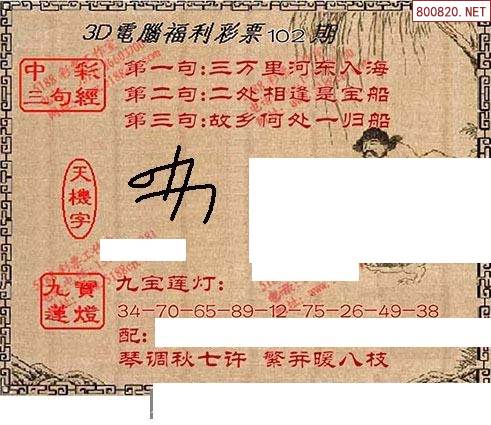 800820.NET
3D電腦福利彩票102期
中彩
三句經
第一句:三万里河东入海
第二句:二处相逢是宝船
第三句:故乡何处一归船
天機字
九寶
蓮燈
九宝莲灯:
34-70-65-89-12-75-26-49-38
配:
琴调秋七许 繁开暖八枝